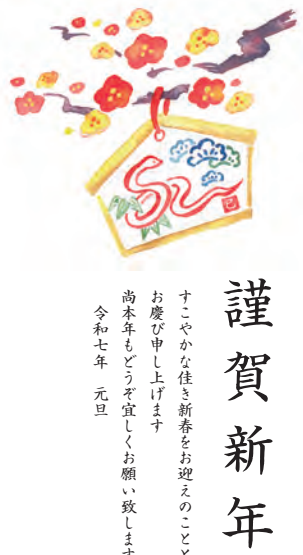 謹賀新年
すこやかな佳き新春をお迎えのことと
お慶び申し上げます
尚本年もどうぞ宜しくお願い致します
令和七年　元旦
巳